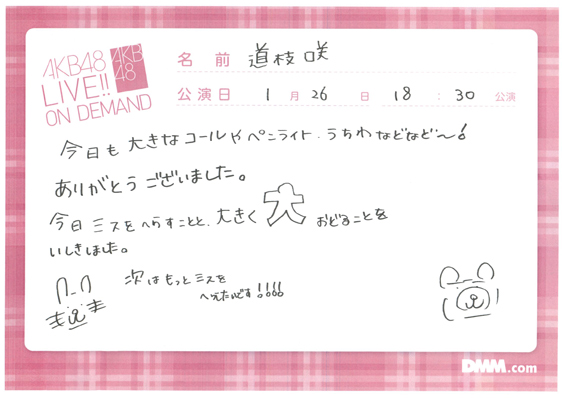 AKB48
LIVE!!
ON DEMAND
AKB
48
名前 道枝咲
公演日 1月26日 18:30公演
今日も大きなコールやペンライト、うちわなどなど〜!
ありがとうございました。
今日ミスをへらすことと、大きく大おどることを
いしきしました。
次はもっとミスを
へらしたいです!!!!
DMM.com